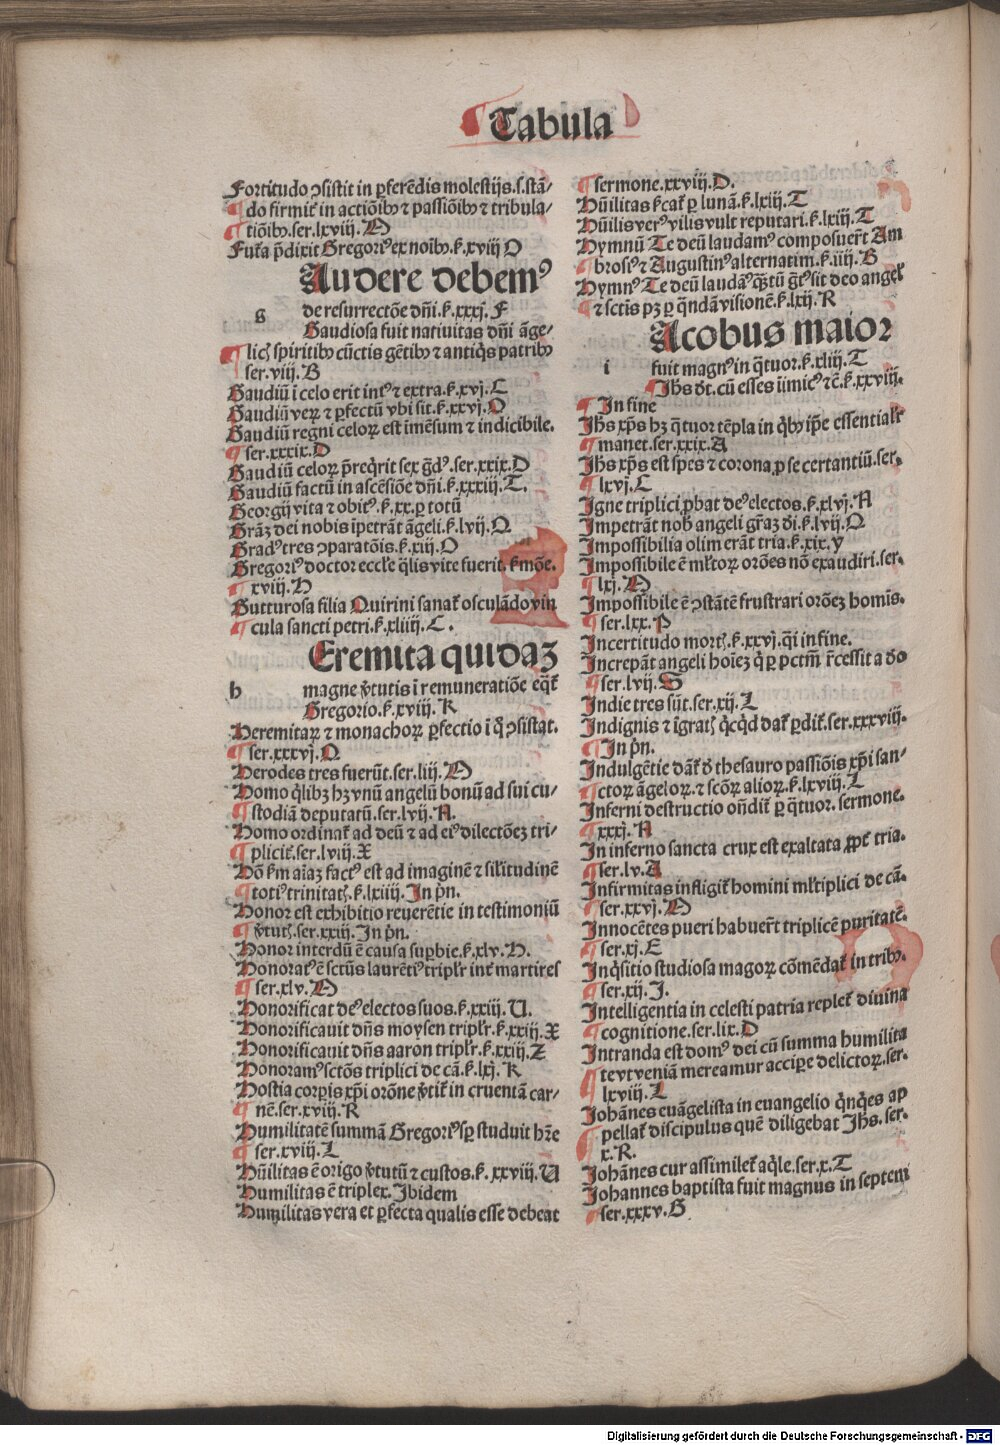 Tabula
Fortitudo ↄsistit in ꝑferēdis molestijs.s.stā-
do firmit̃ in actiōibꝰ ⁊ passiōibꝰ ⁊ tribula-
tiōibꝰ.ser.lxviij.M
Fut̃a p̄dixit Gregoriꝰ ex noībꝰ.ẜ.xviij O
Audere debemꝰ
g de resurrectōe dñi.ẜ.xxxj.F
Gaudiosa fuit natiuitas dñi āge-
licꝭ spiritibꝰ cūctis gētibꝰ ⁊ antiq̄s patribꝰ
ser.viij.B
Gaudiū ī celo erit intꝰ ⁊ extra.ẜ.xvj.C
Gaudiū veꝝ ⁊ ꝑfectū vbi sit.ẜ.xxvj.O
Gaudiū regni celoꝝ est imēsum ⁊ indicibile.
ser.xxxix.D
Gaudiū celoꝝ p̄req̄rit sex ḡdꝰ.ser.xxix.D
Gaudiū factū in ascēsiōe dñi.ẜ.xxxiij.T.
Georgij vita ⁊ obitꝰ.ẜ.xx.ꝑ totū
Grāꝫ dei nobis īpetrāt āgeli.ẜ.lvij.Q.
Gradꝰ tres ↄparatōis.ẜ.xiij.O
Gregoriꝰ doctor eccl̄e q̄lis vite fuerit. ẜmōe.
xviij.H
Gutturosa filia Quirini sanat̃ osculādo vin
cula sancti petri.ẜ.xliiij.C.
Eremita quidaꝫ
h magne v̄tutis ī remuneratiōe eq̄t̃
Gregorio.ẜ.xviij.K
Heremitaꝝ ⁊ monachoꝝ ꝑfectio ī q̄ ↄsistat.
ser.xxxvj.Q
Herodes tres fuerūt.ser.liij.M
Homo q̄libꝫ hꝫ vnū angelū bonū ad sui cu-
stodiā deputatū.ser.lvij.N.
Homo ordinat̃ ad deū ⁊ ad eiꝰ dilectōeꝫ tri-
plicit̃.ser.lviij.X
Hō ẜm aīaꝫ factꝰ est ad imaginē ⁊ sil̄itudinē
totiꝰ trinitatꝭ.ẜ.lxiiij.In pn̄.
Honor est exhibitio reuerētie in testimoniū
v̄tutꝭ.ser.xxiij.In pn̄.
Honor interdū ē causa suꝑbie.ẜ.xlv.H.
Honoratꝰ ē sctūs laurētiꝰ triplr̄ int̃ martires
ser.xlv.M
Honorificat deꝰ electos suos.ẜ.xxiij.U.
Honorificauit dñs moysen triplr̄.ẜ.xxiij.X
Honorificauit dñs aaron triplr̄.ẜ.xxiij.Z
Honoramꝰ sctōs triplici de cā.ẜ.lxj.K
Hostia corꝑis xp̄i orōne v̄tit̃ in cruentā car-
nē.ser.xviij.R
Humilitatē summā Gregoriꝰ sꝑ studuit hr̄e
ser.xviij.L
Hūilitas ē origo v̄tutū ⁊ custos.ẜ. xxviij.U
Humilitas ē triplex.Ibidem
Humilitas vera et ꝑfecta qualis esse debeat
sermone.xxviij.D.
Hūilitas ẜcat̃ ꝑ lunā.ẜ.lxiij.T
Hūilis verꝰ vilis vult reputari.ẜ.lxiij.T
Hymnū Te deū laudamꝰ composuer̄t Am
brosiꝰ ⁊ Augustinꝰ alternatim.ẜ.iiij.B
Hymnꝰ Te deū laudāꝰ q̄ꝫtū ḡtꝰ sit deo angel̓
⁊ sctis pꝫ ꝑ q̄ndā visionē.ẜ.lxij.R
Acobus maior
i fuit magnꝰ in q̄tuor.ẜ.xliij.T
Jhs d̄t.cū esses iimicꝰ ⁊c̄.ẜ.xxviij.
In fine
Jhs xp̄s hꝫ q̄tuor tēpla in q̄bꝰ ip̄e essentialr̄
manet.ser.xxix.A
Jhs xp̄s est sp̄es ⁊ corona ꝓ se certantiū.ser.
lxvj.C
Igne triplici ꝓbat deꝰ electos.ẜ.xlvj.N
Impetrāt nob̄ angeli gr̄aꝫ di̓.ẜ.lvij.Q
Impossibilia olim erāt tria.ẜ.xix.y
Impossibile ē ml̄toꝝ orōes nō exaudiri.ser.
lxj.M
Impossibile ē ↄstātē frustrari orōeꝫ homīs.
ser.lxx.P
Incertitudo mortꝭ.ẜ.xxvj.q̄i in fine.
Increpāt angeli hoīeꝫ q̄ ꝑ pctm̄ r̄cessit a dō
ser.lvij.S
Indie tres sūt.ser.xij.L
Indignis ⁊ īgratꝭ q̄cq̄d dat̃ ꝑdit̃.ser.xxxviij.
In pn̄.
Indulgētie dāt̃ d̄ thesauro passiōis xp̄i san-
ctoꝝ āgeloꝝ.⁊ scōꝝ alioꝝ.ẜ.lxviij.L
Inferni destructio on̄dit̃ ꝑ q̄tuor. sermone.
xxxj.N
In inferno sancta crux est exaltata ꝓpt̃ tria.
ser.lv.A
Infirmitas infligit̃ homini ml̄tiplici de cā.
ser.xxvj.M
Innocētes pueri habuer̄t triplicē puritatē.
ser.xj.E
Inq̄sitio studiosa magoꝝ cōmēdat̃ in tribꝰ.
ser.xij.J.
Intelligentia in celesti patria replet̃ diuina
cognitione.ser.lix.D
Intranda est domꝰ dei cū summa humilita
te vt veniā mereamur accipe delictoꝝ.ser.
lxviij.L
Johānes euāgelista in euangelio q̄nq̄es ap
pellat̃ discipulus quē diligebat Jhs.ser.
x.R.
Johānes cur assimilet̃ aq̄le.ser.x.T
Johannes baptista fuit magnus in septem
ser.xxxv.G
Digitalisierung gefördert durch die Deutsche Forschungsgemeinschaft - DFG